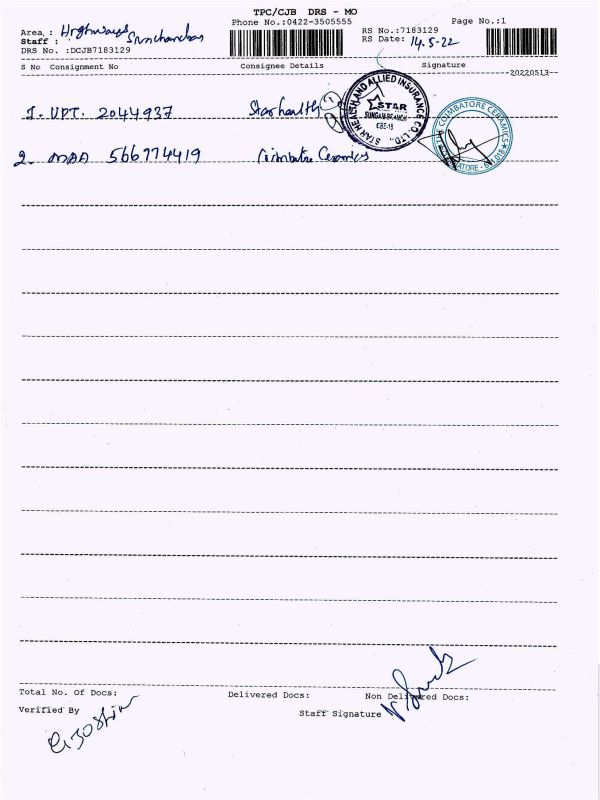 TPC/CJB DRS - MO
Phone No.:0422-3505555
Page No.:1
Area : Highways
Staff :
DRS No. :DCJB7183129
RS No.:7183129
RS Date: 14-5-22
S No Consignment No Consignee Details Signature
20220513
1. UPT. 2044937 Starhealth
STAR HEALTH AND ALLIED INSURANCE CO. LTD.,
STAR
SUNGAM BRANCH
CBE-18
2. MAA 566774419 Coimbatore Ceramics
COIMBATORE CERAMICS
Total No. Of Docs: Delivered Docs: Non Delivered Docs:
Verified By
Staff Signature